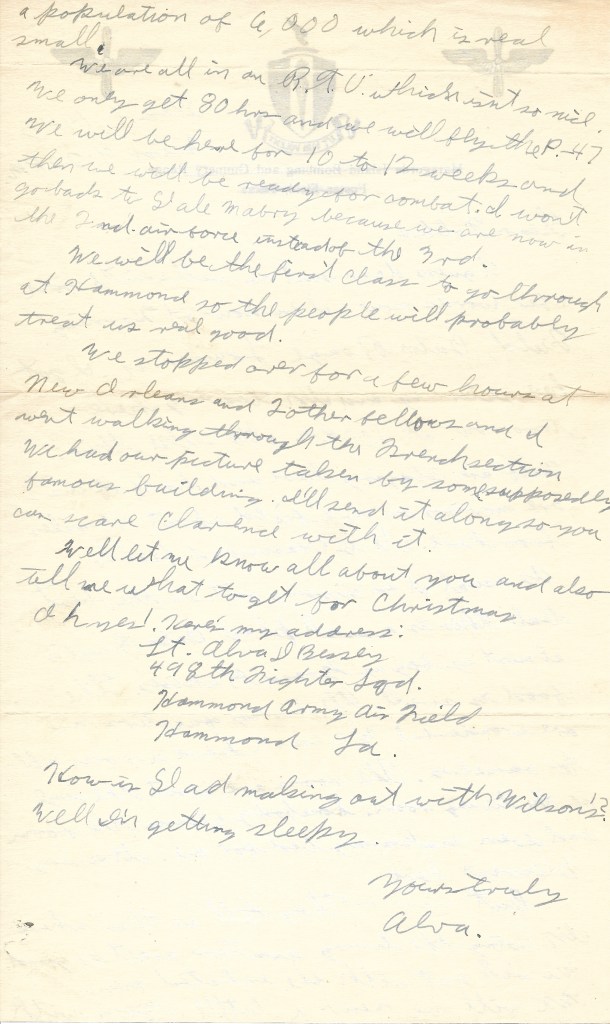 a population of 6,000 which is real
small.
We are all in an R.T.U. which isn't so nice.
We only get 80 hrs and we will fly the P-47
We will be here for 10 to 12 weeks and
then we will be ready for combat. I won't
go back to Dale Mabry because we are now in
the 2nd air force instead of the 3rd.
We will be the first class to go through
at Hammond so the people will probably
treat us real good.
We stopped over for a few hours at
New Orleans and 2 other fellows and I
went walking through the French section
We had our picture taken by some supposedly
famous building. I'll send it along so you
can scare Clarence with it.
Well let me know all about you and also
tell me what to get for Christmas
Oh yes! Here's my address:
Lt. Alva D Bessey
498th Fighter Sqd.
Hammond Army Air Field
Hammond La.
How is Dad making out with Wilson's?
Well I'm getting sleepy.
Yours truly
Alva.